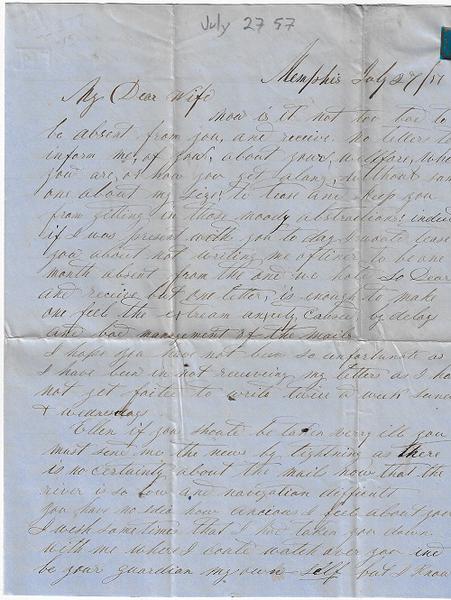 July 27 57
Memphis July 27/57
My Dear Wife
Now is it not too bad to
be absent from you, and receive no letters to
inform me, of you, about your, wellfare, whe
you are, or how you get along, without som
one about my size, to tease and keep you
from getting in those moody abstractions! indee
if I was present with you to day I woule tease
you about not writing me oftiner to be one
month absent from the one we hole so Dear
and receive but one letter, is enough to make
one feel the extream anxiety caused by delay
and bad management of the mails
I hope you have not been so unfortunate as
I have been in not receiving my letters as I ha
not yet failed to write twice a week Sund
& Wednesdays
Ellen if you shoule be taken verry ill you
must send me the news by lightning as there
is no certainty about the mails now that the
river is so low and navigation difficult
you have no idea how ancious I feel about you
I wish sometimes that I had taken you down
with me where I coule watch over you and
be your guardian my own self but I know